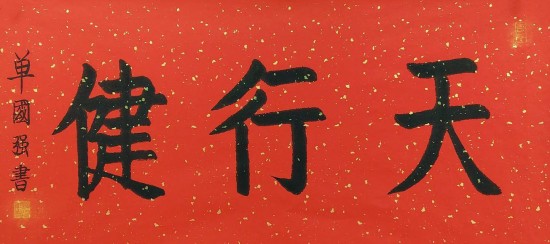 天行健
单國强書